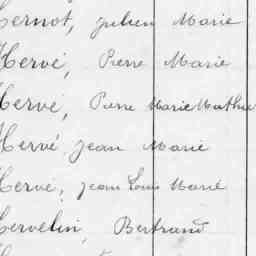 Hernot, Julien Marie
Hervé, Pierre Marie
Hervé, Pierre Marie Mathu
Hervé Jean Marie
Hervé, Jean Louis Marie
Hervelin, Bertrand